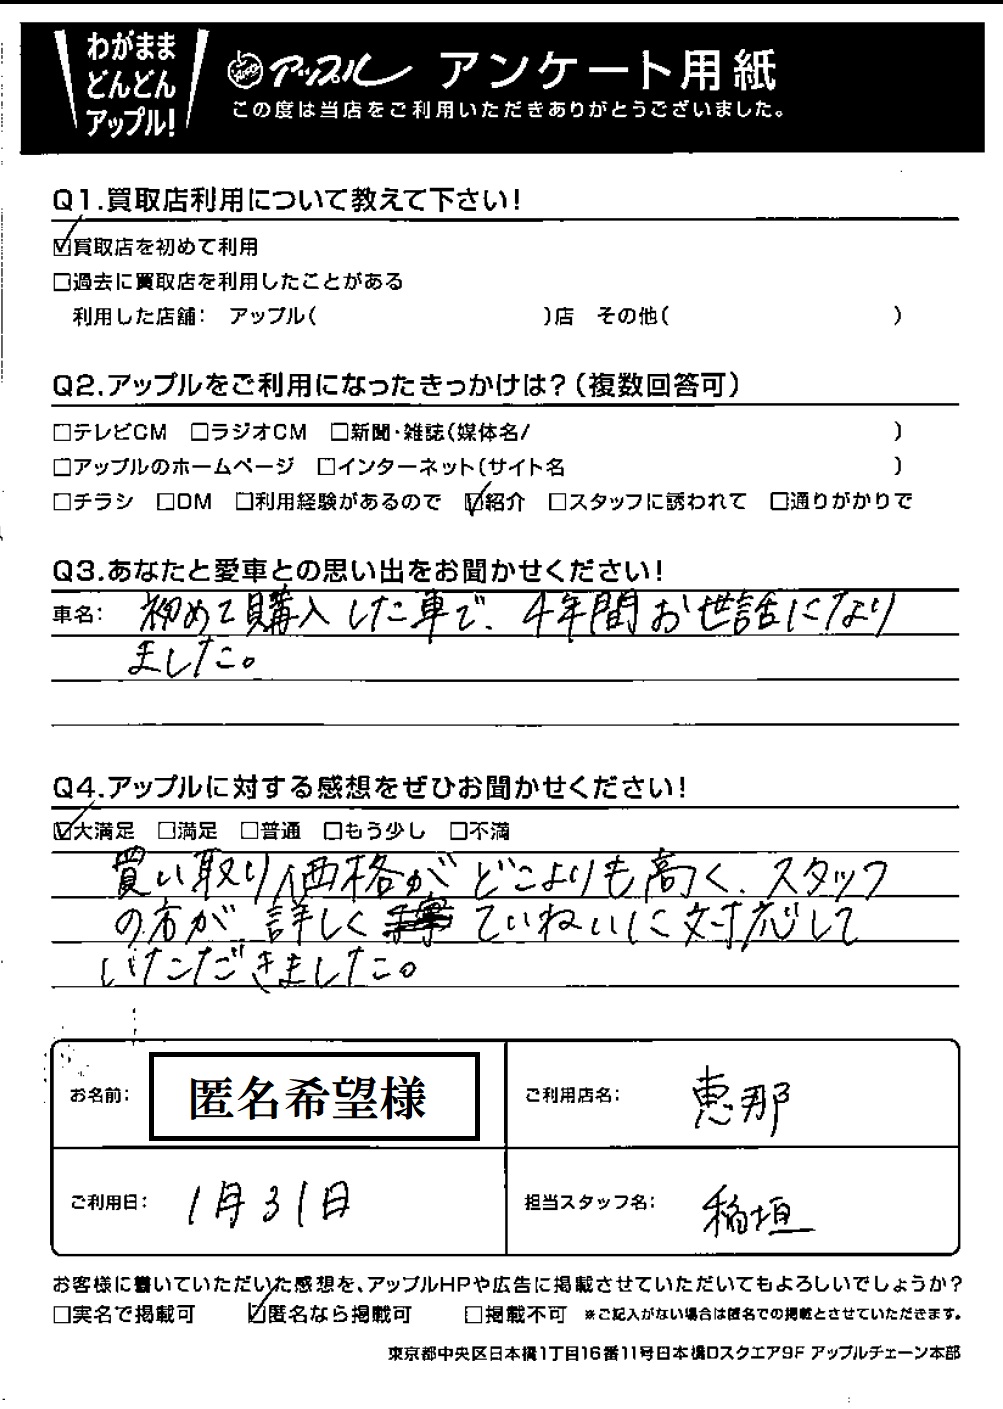 わがまま
どんどん
アップル!
アップル アンケート用紙
この度は当店をご利用いただきありがとうございました。
Q1.買取店利用について教えて下さい!
☑買取店を初めて利用
□過去に買取店を利用したことがある
利用した店舗: アップル( )店 その他( )
Q2.アップルをご利用になったきっかけは?(複数回答可)
□テレビCM □ラジオCM □新聞・雑誌(媒体名/ )
□アップルのホームページ □インターネット(サイト名 )
□チラシ □DM □利用経験があるので ☑紹介 □スタッフに誘われて □通りがかりで
Q3.あなたと愛車との思い出をお聞かせください!
車名: 初めて購入した車で、4年間お世話になり
ました。
Q4.アップルに対する感想をぜひお聞かせください!
☑大満足 □満足 □普通 □もう少し □不満
買い取り価格がどこよりも高く、スタッフ
の方が詳しくていねいに対応して
いただきました。
お名前: 匿名希望様 ご利用店名: 恵那
ご利用日: 1月31日 担当スタッフ名: 稲垣
お客様に書いていただいた感想を、アップルHPや広告に掲載させていただいてもよろしいでしょうか?
□実名で掲載可 ☑匿名なら掲載可 □掲載不可 ※ご記入がない場合は匿名での掲載とさせていただきます。
東京都中央区日本橋1丁目16番11号日本橋Dスクエア9F アップルチェーン本部